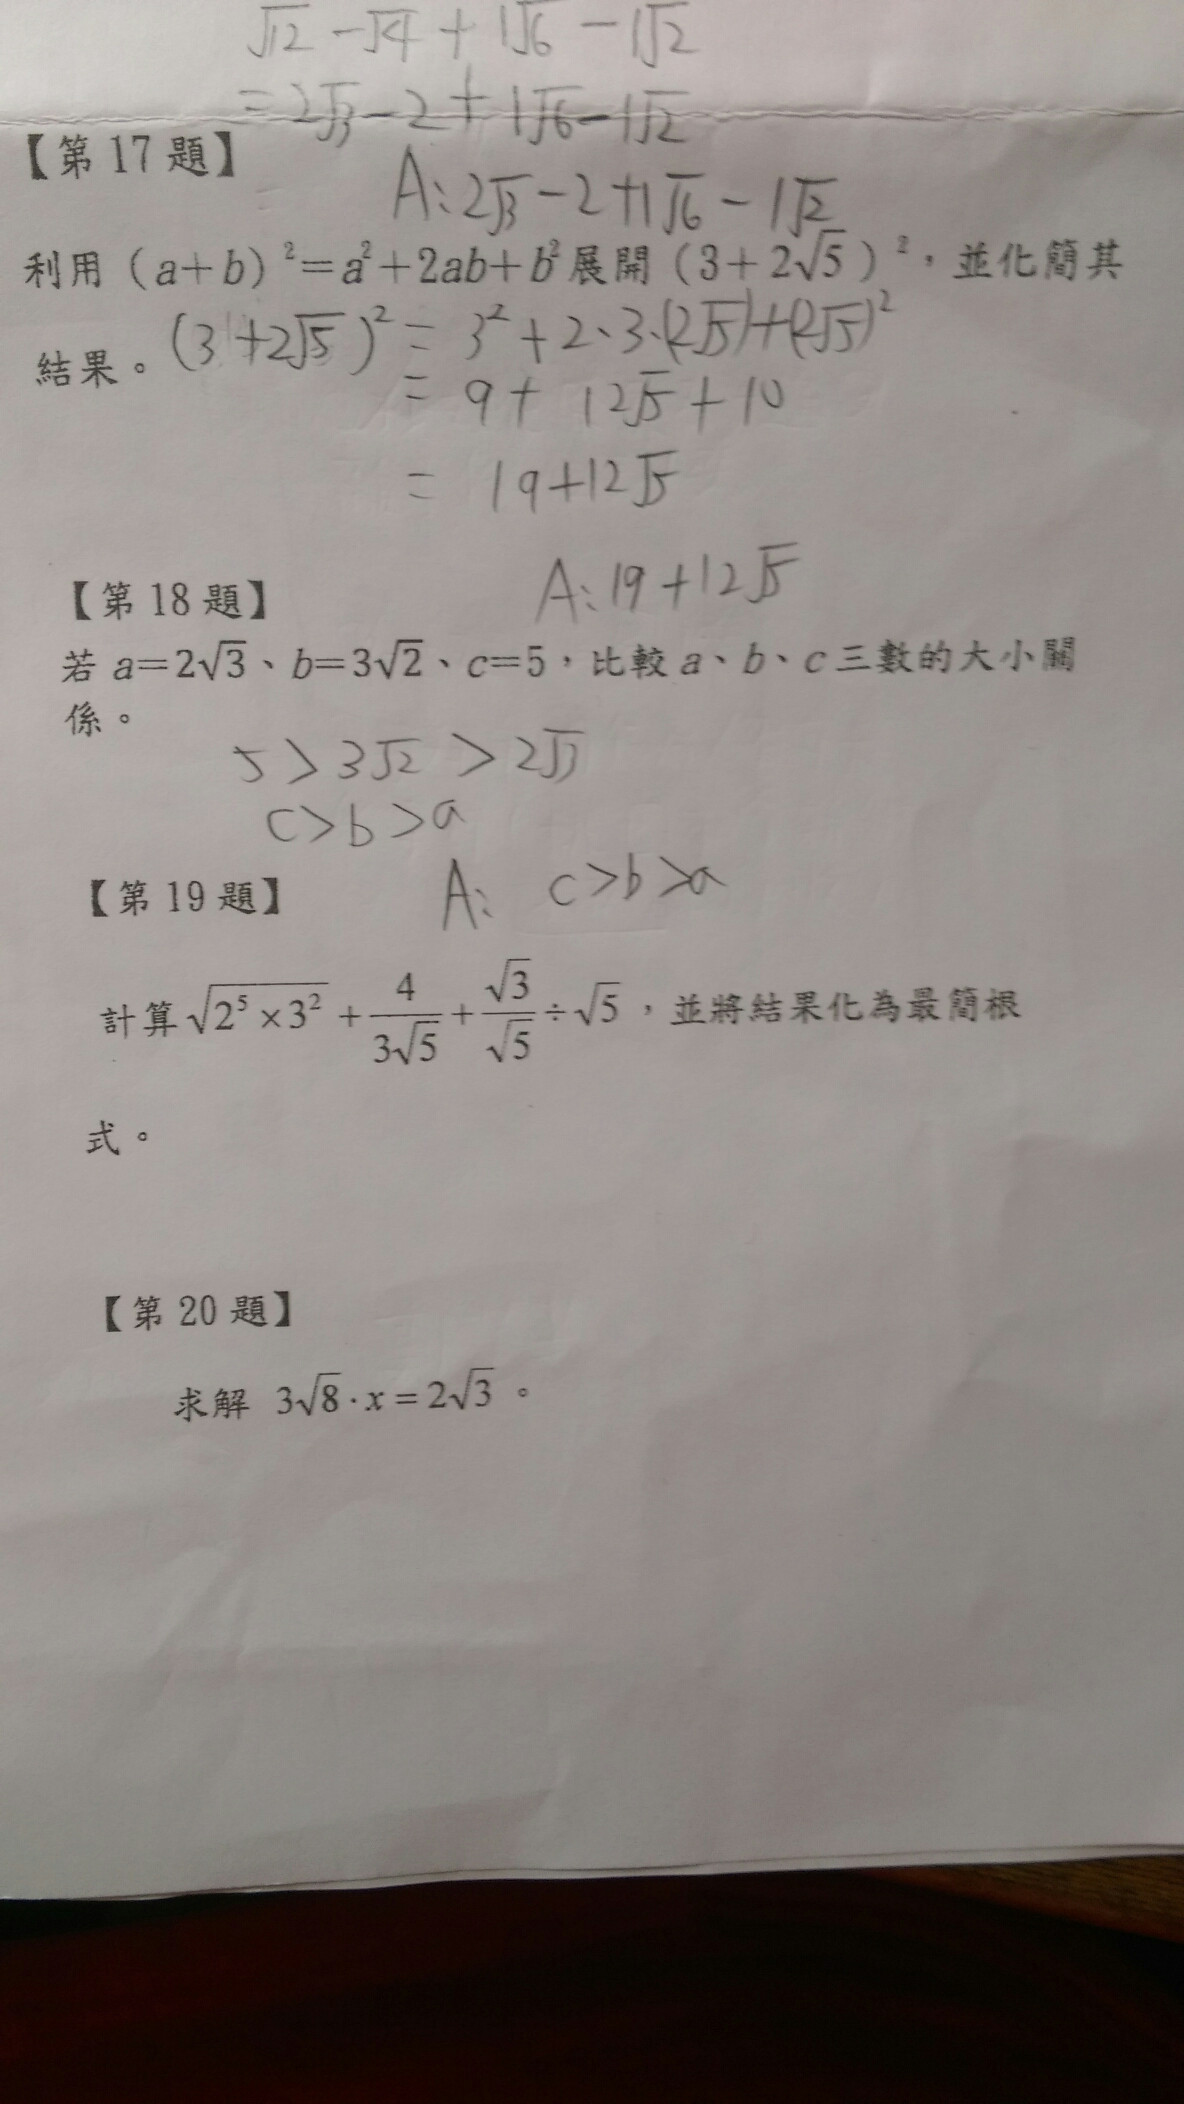 √12 -√4 + 1√6 - 1√2
= 2√3 - 2 + 1√6 - 1√2
【第 17 題】
A: 2√3 - 2 + 1√6 - 1√2
利用（a＋b）²＝a²＋2ab＋b²展開（3＋2√5）²，並化簡其
結果。(3+2√5)² = 3² + 2·3·(2√5)+(2√5)²
= 9 + 12√5 + 10
= 19+12√5
A: 19+12√5
【第 18 題】
若 a＝2√3、b＝3√2、c＝5，比較 a、b、c 三數的大小關
係。
5 > 3√2 > 2√3
c > b > a
A: c > b > a
【第 19 題】
計算 √(2⁵ × 3²) + 4/(3√5) + √3/√5 ÷ √5 ，並將結果化為最簡根
式。
【第 20 題】
求解 3√8 · x = 2√3 。